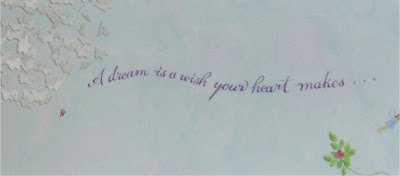 A dream is a wish your heart makes . . .